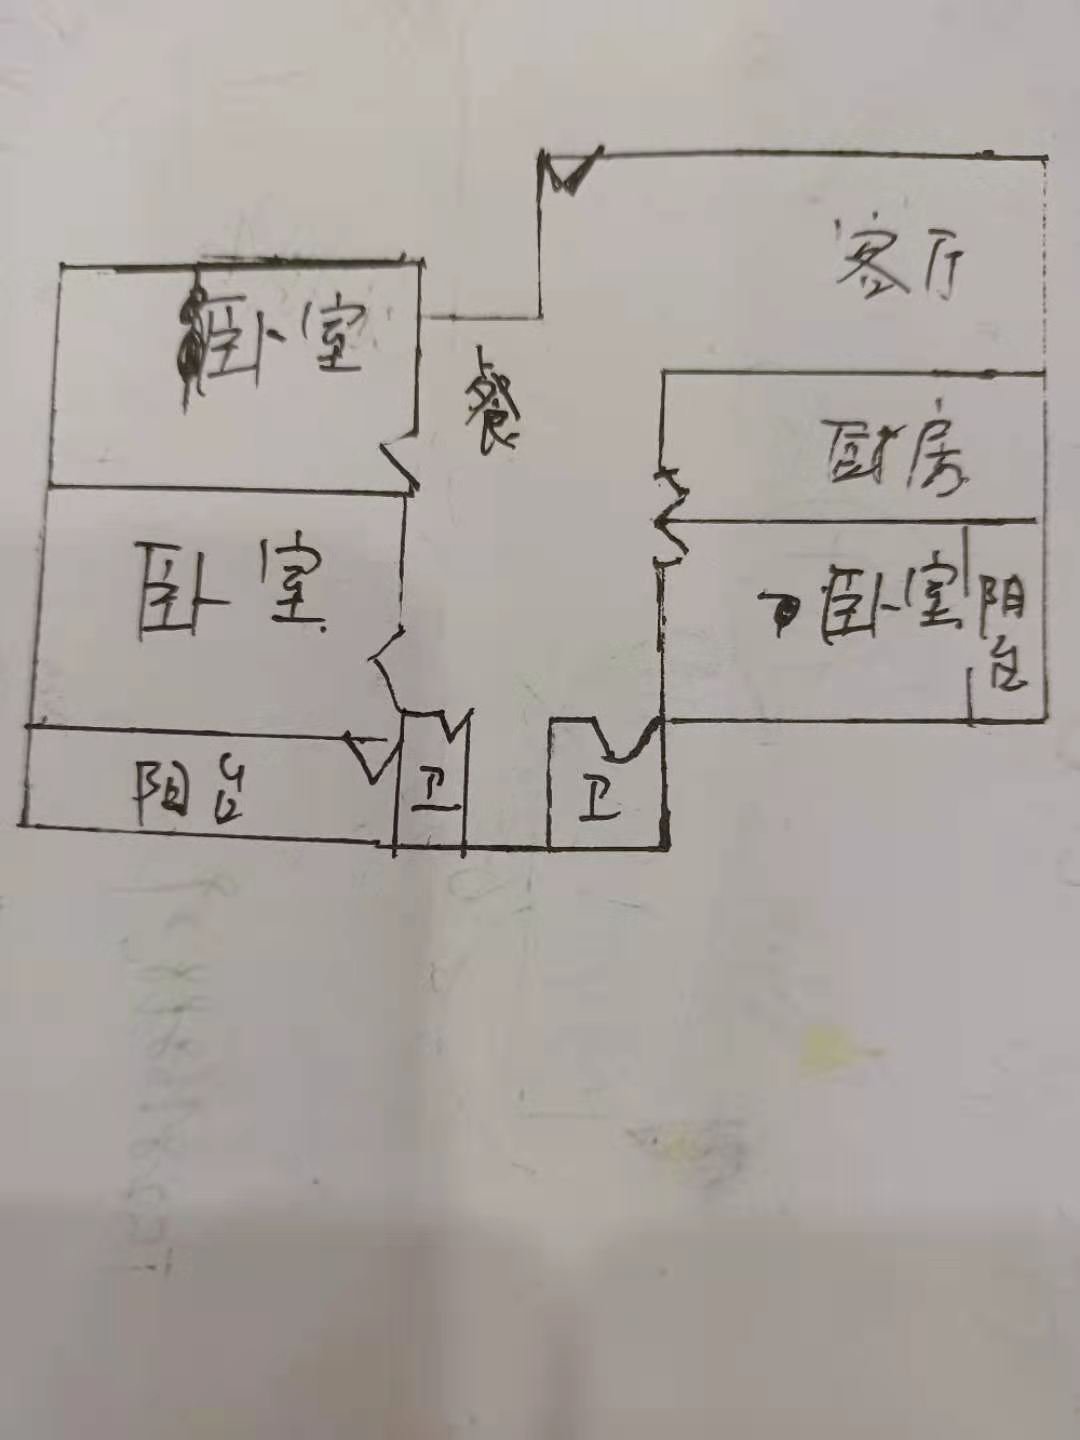 客厅
卧室
餐
厨房
卧室
卧室
阳台
阳台
卫
卫